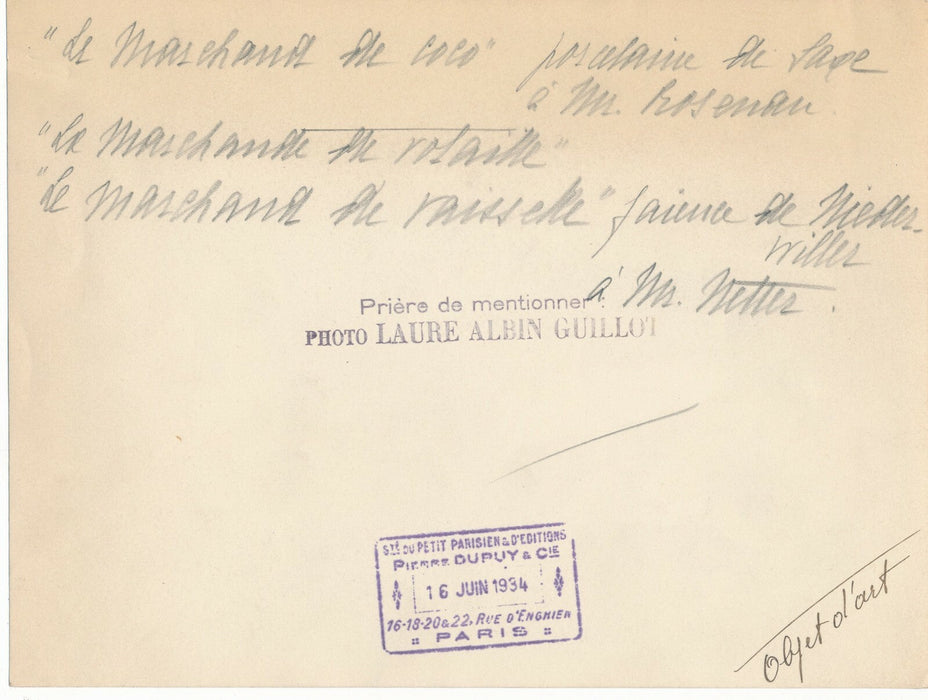 "Le Marchand de coco" porcelaine de Saxe
à Mr. Rosenau.
"La Marchande de volaille"
"Le marchand de vaisselle" faïence de Nieder-
willer
à Mr. Netter.
Prière de mentionner :
PHOTO LAURE ALBIN GUILLOT
STÉ DU PETIT PARISIEN & D'EDITIONS
PIERRE DUPUY & CIE
16 JUIN 1934
16-18-20 & 22, RUE D'ENGHIEN
PARIS
Objet d'art